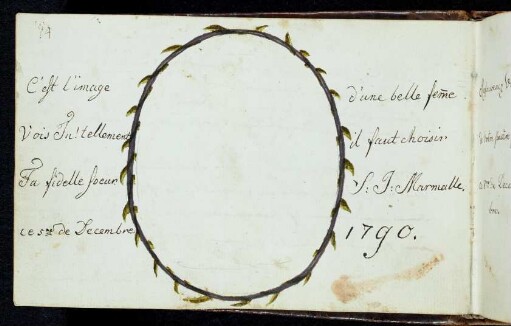 C'est l'image d'une belle fem̄e
Vois Tu! tellement il faut choisir
Ta fidelle soeur S: J: Marmalle.
ce 5me de Decembre 1790.